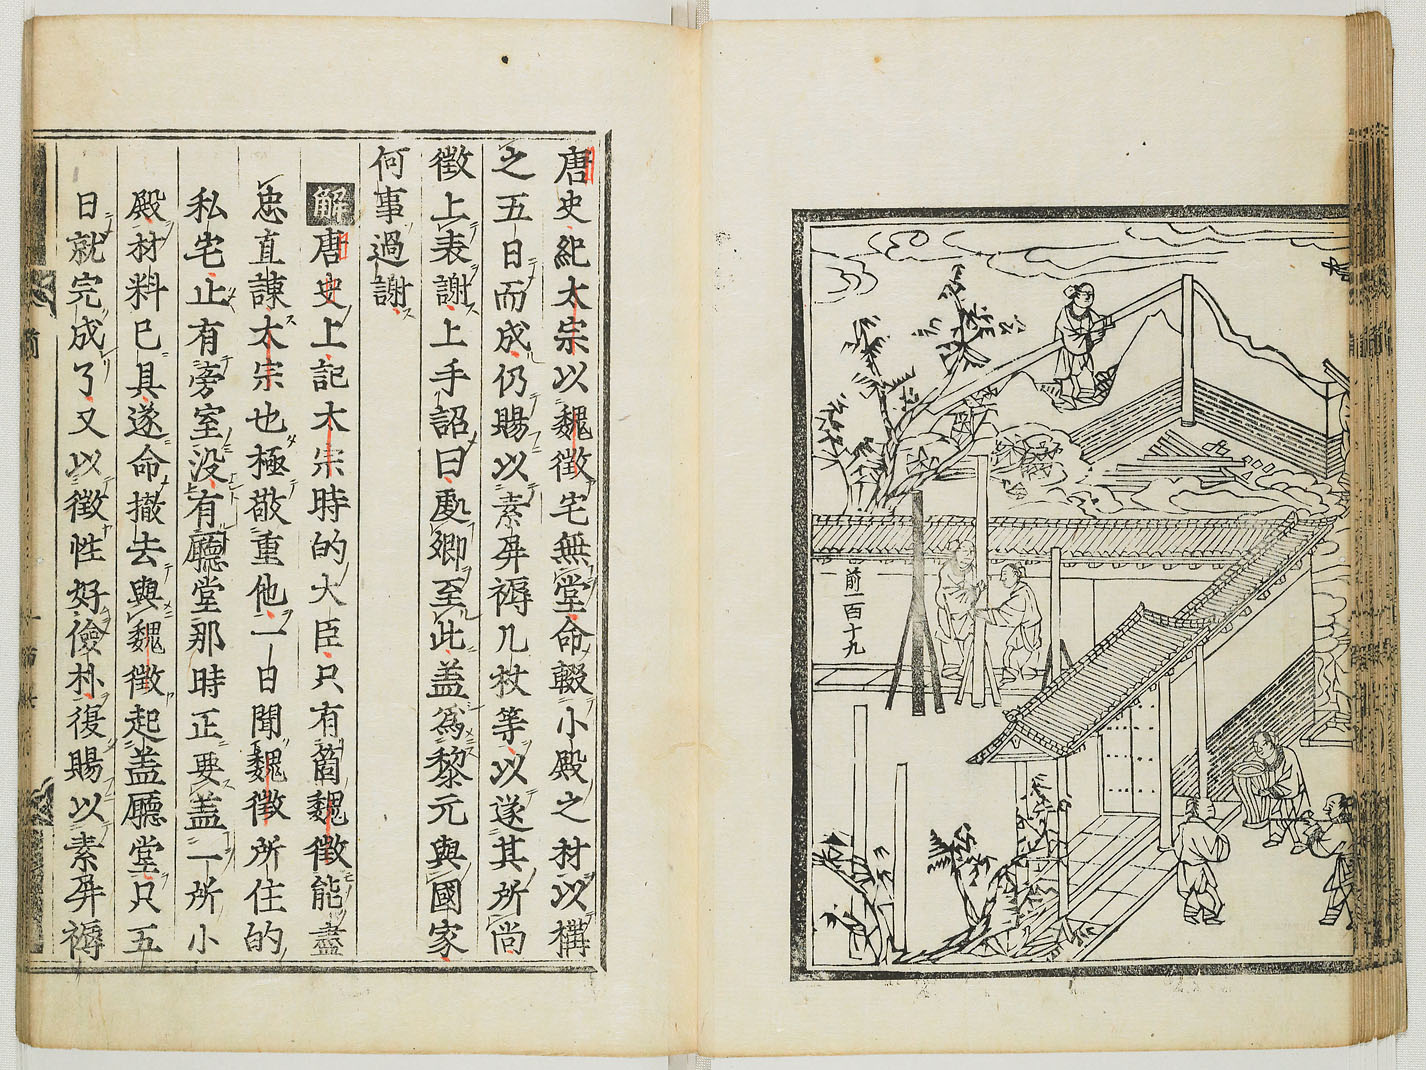 前一百十九
唐史紀太宗以魏徵宅無堂命輟小殿之材以構
之五日而成仍賜以素屏褥几杖等以遂其所尚
徵上表謝上手詔曰處卿至此盖爲黎元與國家
何事過謝
解唐史上記太宗時的大臣只有箇魏徵能盡
忠直諫太宗也極敬重他一日聞魏徵所住的
私宅止有旁室没有廳堂那時正要盖一所小
殿材料已具遂命撤去與魏徵起盖廳堂只五
日就完成了又以徵性好儉朴復賜以素屏褥